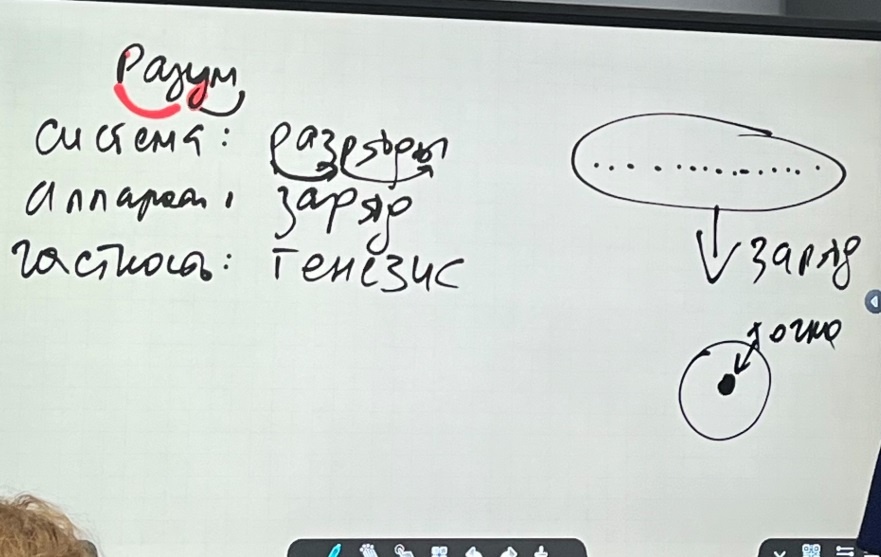 Разум
система: разряды
аппарат: заряд
частность: генезис
заряд
точка